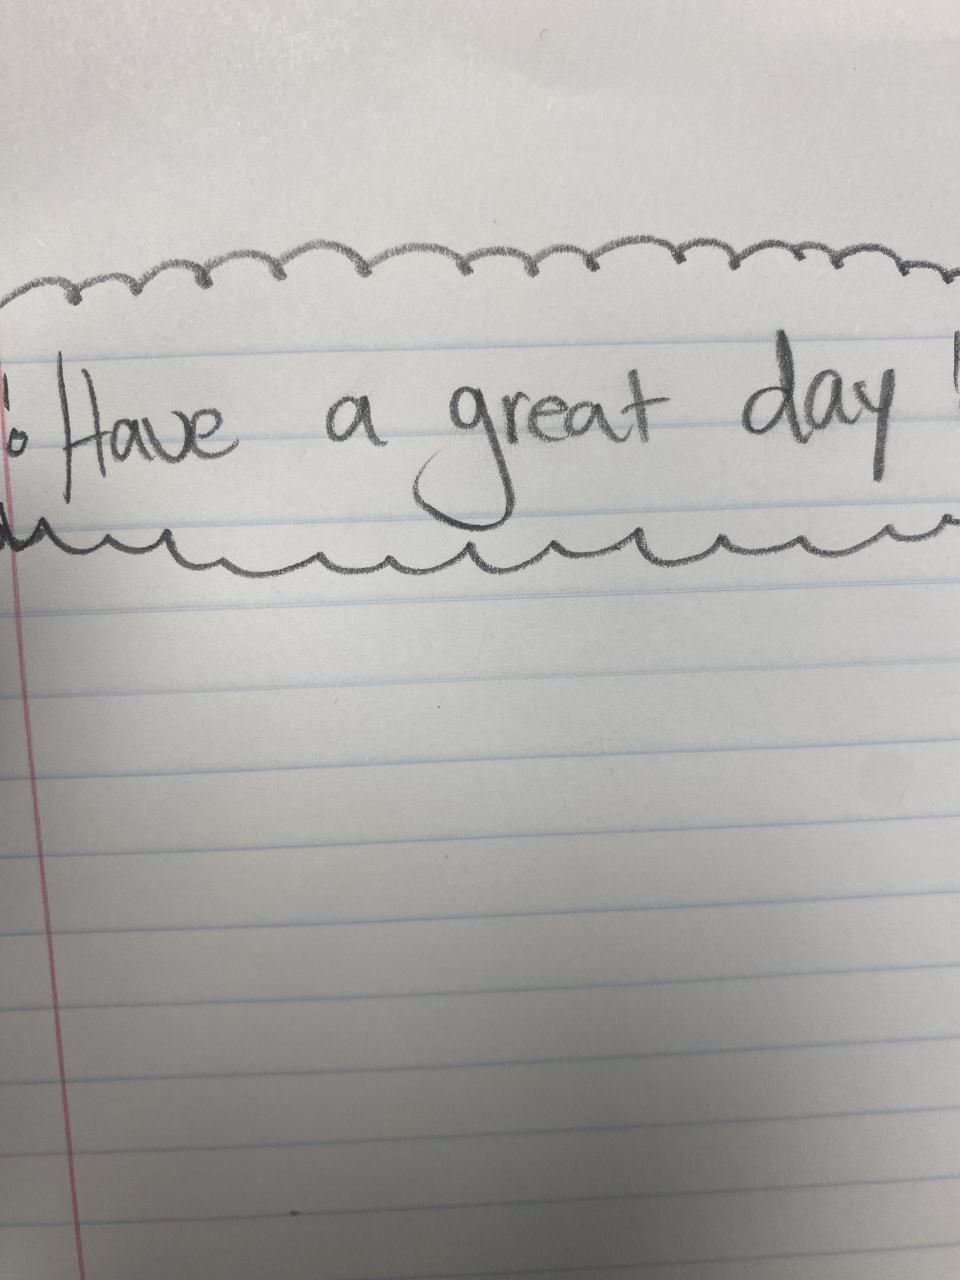 ! Have a great day !